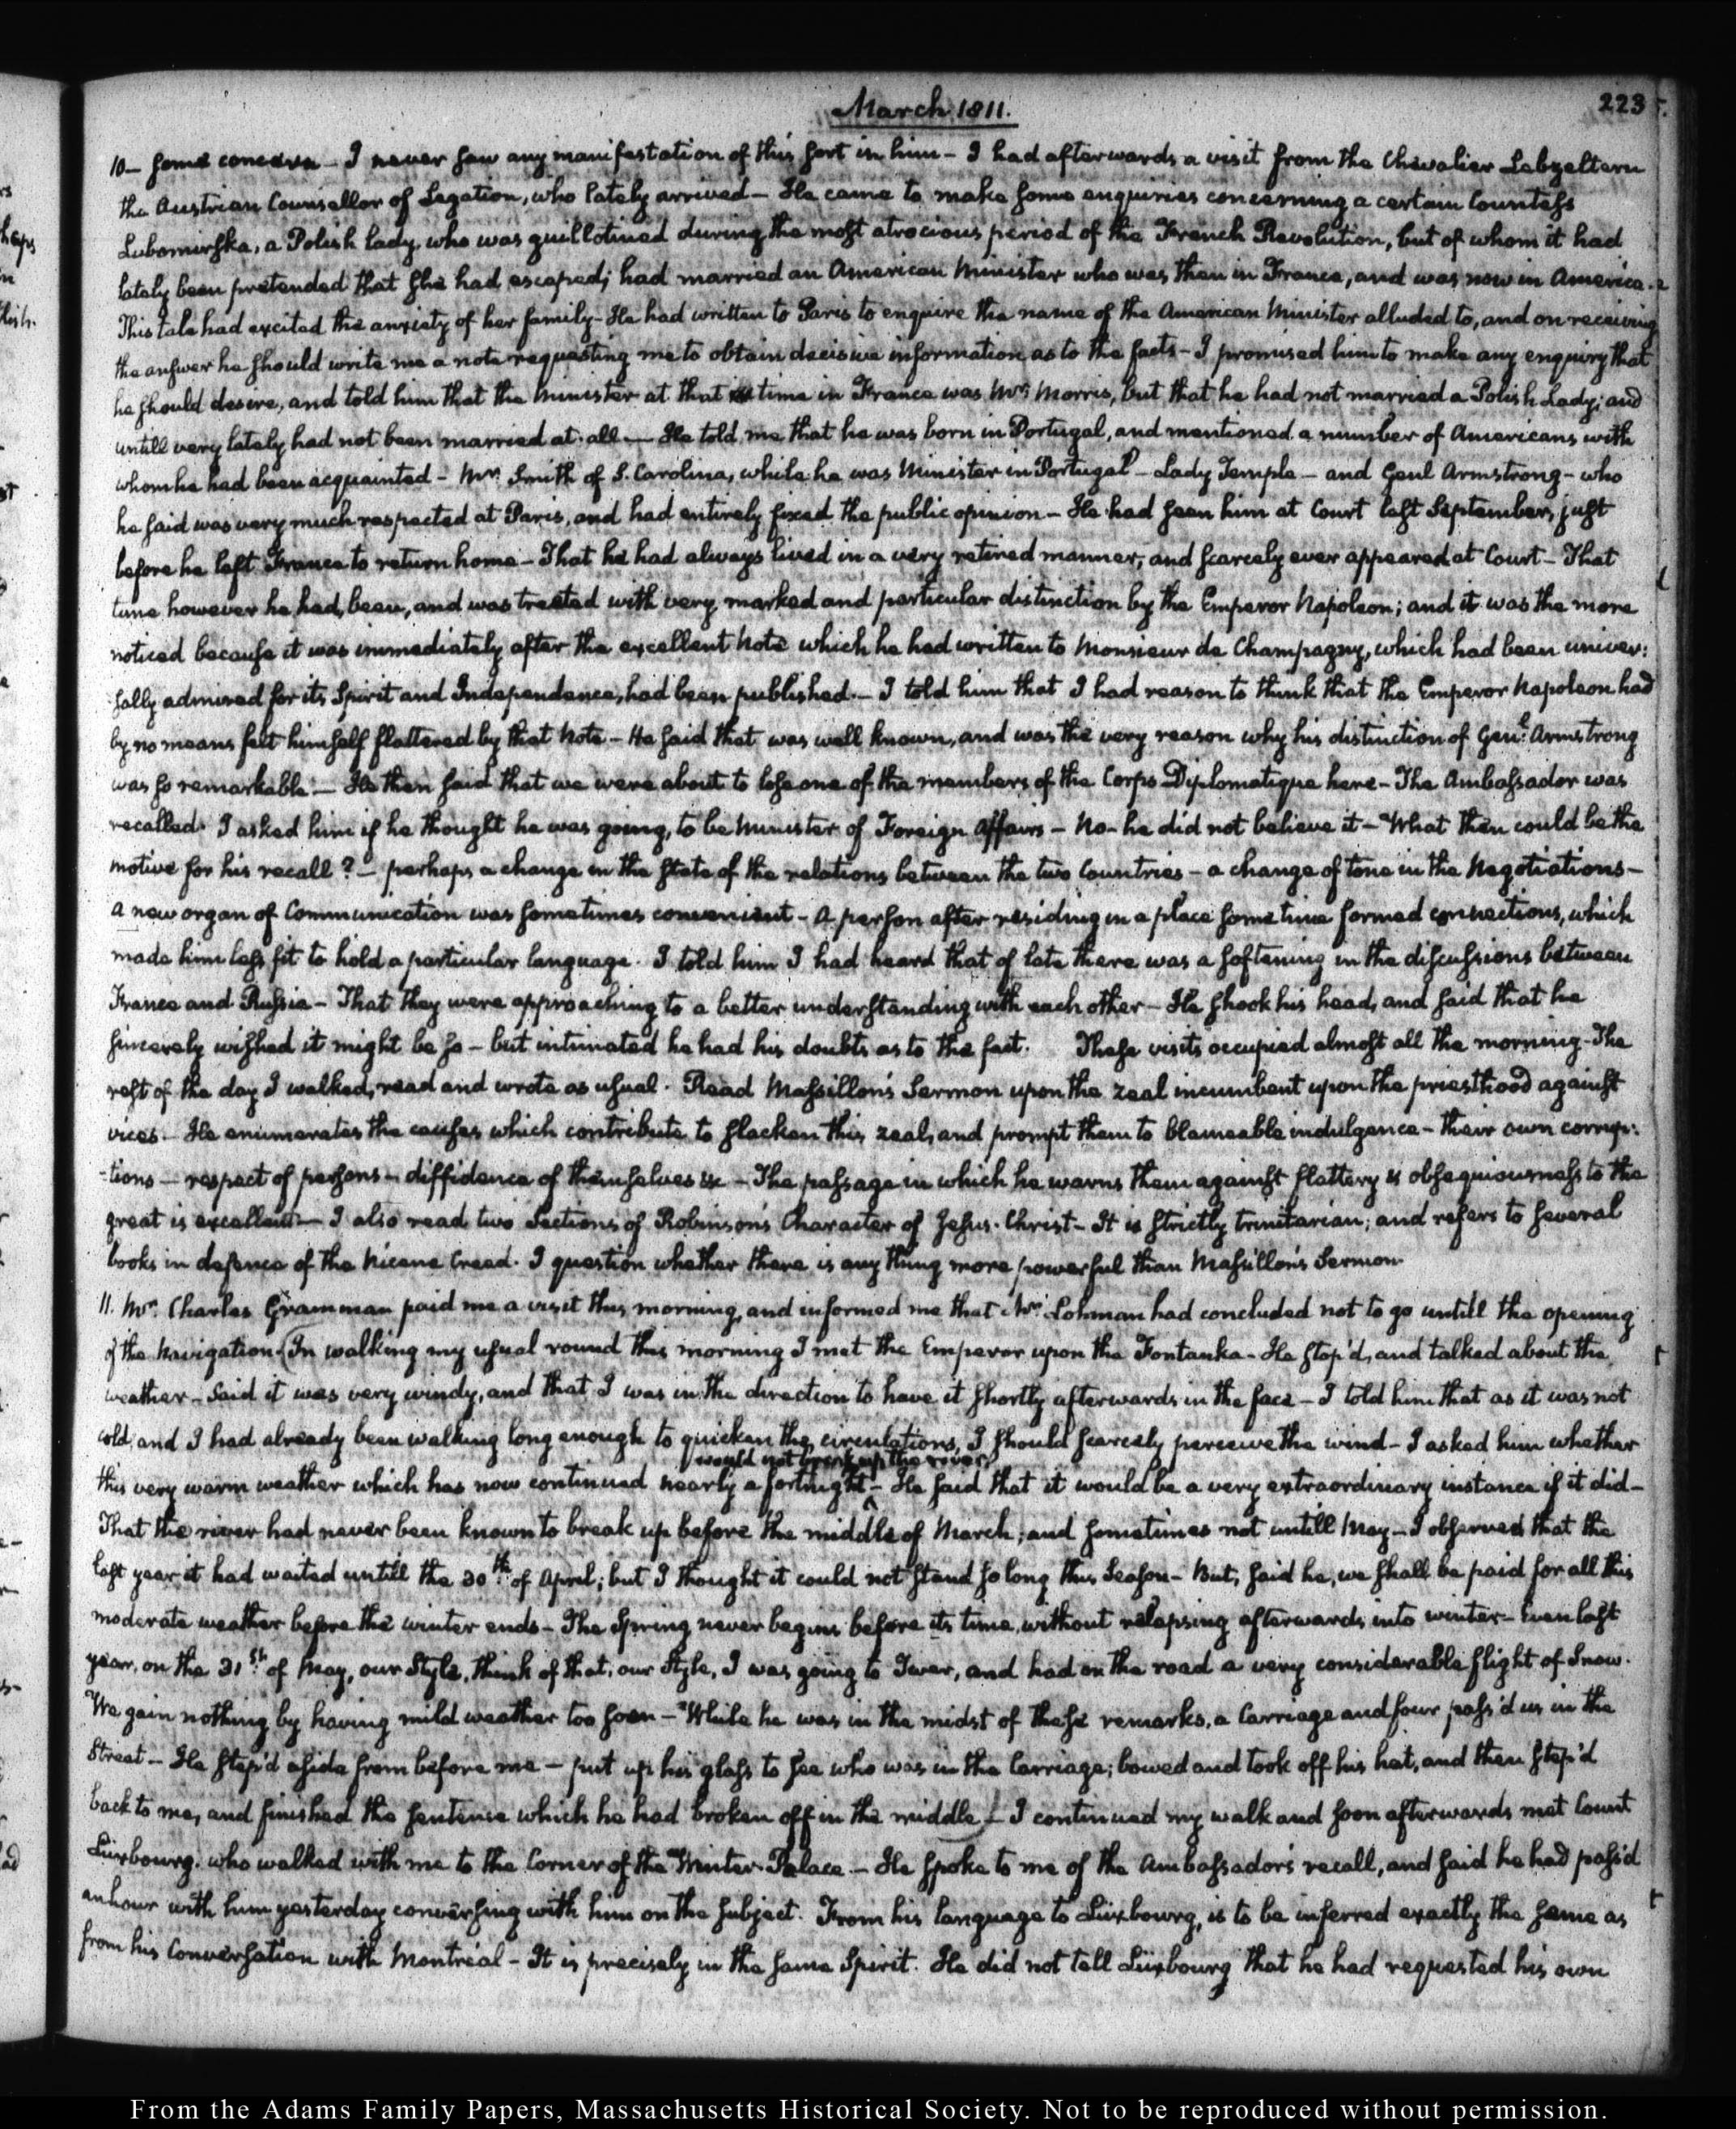 March 1811.
223
10— some concern — I never saw any manifestation of this sort in him — I had afterwards a visit from the Chevalier Lebzeltern
the Austrian Counsellor of Legation, who lately arrived — He came to make some enquiries concerning a certain Countess
Lubomirska, a Polish lady, who was guillotined during the most atrocious period of the French Revolution, but of whom it had
lately been pretended that she had escaped; had married an American Minister who was then in France, and was now in America.
This tale had excited the anxiety of her family — He had written to Paris to enquire the name of the American Minister alluded to, and on receiving
the answer he should write me a note requesting me to obtain decisive information as to the facts — I promised him to make any enquiry that
he should desire, and told him that the Minister at that time in France was Mr. Morris, but that he had not married a Polish Lady; and
untill very lately had not been married at all — He told me that he was born in Portugal, and mentioned a number of Americans with
whom he had been acquainted — Mr. Smith of S. Carolina, while he was Minister in Portugal — Lady Temple — and Genl Armstrong — who
he said was very much respected at Paris, and had entirely fixed the public opinion — He had seen him at Court last September, just
before he left France to return home — That he had always lived in a very retired manner, and scarcely ever appeared at Court — That
time however he had been, and was treated with very marked and particular distinction by the Emperor Napoleon; and it was the more
noticed because it was immediately after the excellent Note which he had written to Monsieur de Champagny, which had been univer:
sally admired for its Spirit and Independence, had been published. — I told him that I had reason to think that the Emperor Napoleon had
by no means felt himself flattered by that Note — He said that was well known, and was the very reason why his distinction of Genl. Armstrong
was so remarkable — He then said that we were about to lose one of the members of the Corps Diplomatique here — The Ambassador was
recalled. I asked him if he thought he was going, to be Minister of Foreign Affairs — No — he did not believe it — What then could be the
motive for his recall? — perhaps a change in the state of the relations between the two Countries — a change of tone in the Negotiations —
A new organ of Communication was sometimes convenient — A person after residing in a place some time formed connections, which
made him less fit to hold a particular language. I told him I had heard that of late there was a softening in the discussions between
France and Russia — That they were approaching to a better understanding with each other — He shook his head, and said that he
sincerely wished it might be so — but intimated he had his doubts as to the fact. These visits occupied almost all the morning — The
rest of the day I walked, read and wrote as usual. Read Massillon's Sermon upon the zeal incumbent upon the priesthood against
vices. — He enumerates the causes which contribute to slacken this zeal, and prompt them to blameable indulgence — their own corrup:
-tions — respect of persons — diffidence of themselves &c — The passage in which he warns them against flattery & obsequiousness to the
great is excellent — I also read two Sections of Robinson's Character of Jesus Christ — It is strictly trinitarian; and refers to several
books in defence of the Nicene Creed. I question whether there is any thing more powerful than Massillon's Sermon.
11. Mr. Charles Gramman paid me a visit this morning, and informed me that Mr. Lohman had concluded not to go untill the opening
of the Navigation. (In walking my usual round this morning I met the Emperor upon the Fontanka — He stop'd, and talked about the
weather — Said it was very windy, and that I was in the direction to have it shortly afterwards in the face — I told him that as it was not
cold, and I had already been walking long enough to quicken the circulations, I should scarcely perceive the wind — I asked him whether
would not break up the river
this very warm weather which has now continued nearly a fortnight ^ — He said that it would be a very extraordinary instance if it did —
That the river had never been known to break up before the middle of March; and sometimes not untill May — I observed that the
last year it had waited untill the 30th. of April; but I thought it could not stand so long this Season — But, said he, we shall be paid for all this
moderate weather before the winter ends — The Spring never begins before its time, without relapsing afterwards into winter — Even last
year, on the 31st. of May, our Style, think of that, our Style, I was going to Twer, and had on the road a very considerable flight of Snow.
We gain nothing by having mild weather too soon — While he was in the midst of these remarks, a Carriage and four pass'd us in the
Street — He step'd aside from before me — put up his glass to see who was in the Carriage; bowed and took off his hat, and then step'd
back to me, and finished the sentence which he had broken off in the middle) — I continued my walk and soon afterwards met Count
Luxbourg, who walked with me to the Corner of the Winter Palace — He spoke to me of the Ambassador's recall, and said he had pass'd
an hour with him yesterday conversing with him on the subject. From his language to Luxbourg, is to be inferred exactly the same as
from his Conversation with Montréal — It is precisely in the same Spirit. He did not tell Luxbourg that he had requested his own
From the Adams Family Papers, Massachusetts Historical Society. Not to be reproduced without permission.